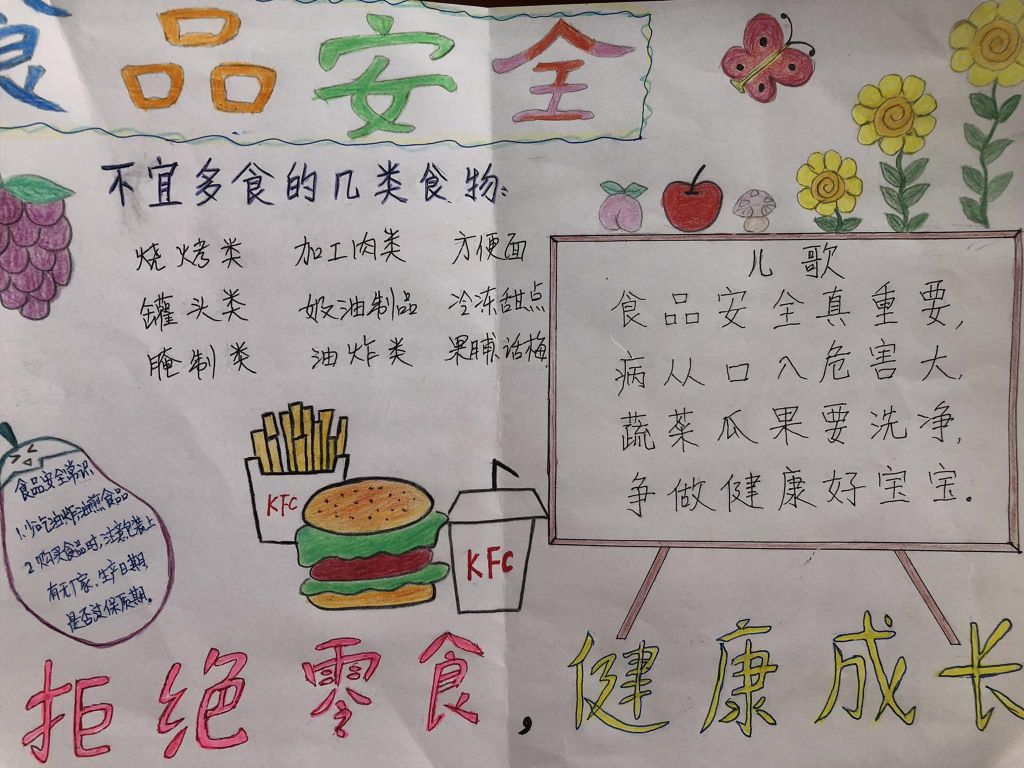 食品安全
不宜多食的几类食物:
烧烤类 加工肉类 方便面
罐头类 奶油制品 冷冻甜点
腌制类 油炸类 果脯话梅
儿歌
食品安全真重要,
病从口入危害大,
蔬菜瓜果要洗净,
争做健康好宝宝.
KFC
KFC
食品安全常识
1.少吃油炸油煎食品
2.购买食品时,注意包装上
有无厂家,生产日期,
是否过保质期.
拒绝零食,健康成长